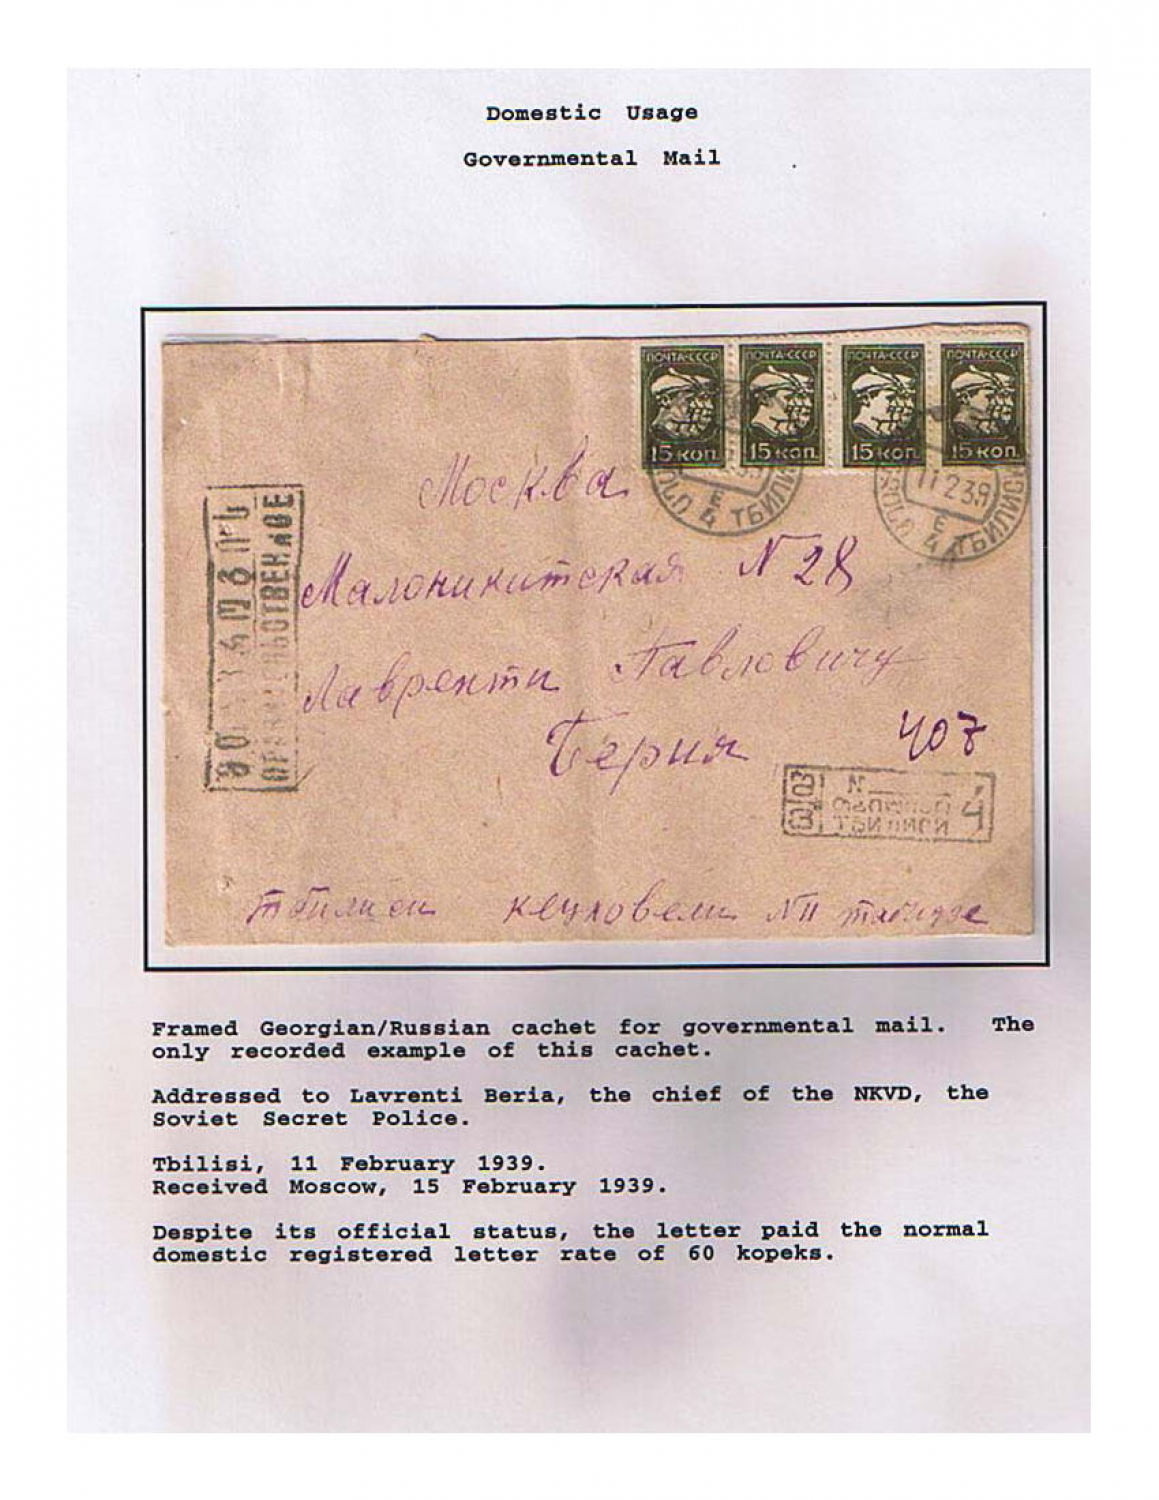 Domestic Usage
Governmental Mail
ПОЧТА-СССР ПОЧТА-СССР ПОЧТА-СССР ПОЧТА-СССР
15 КОП. 15 КОП. 15 КОП. 15 КОП.
11 2 39
Е Е
4 ТБИЛИСИ 4 ТБИЛИСИ
Москва
Малоникитская N 28
Лаврентти Павловичу
Берия
407
N
ТБИЛИСИ 4
тбилиси кецховели N11
Framed Georgian/Russian cachet for governmental mail. The
only recorded example of this cachet.
Addressed to Lavrenti Beria, the chief of the NKVD, the
Soviet Secret Police.
Tbilisi, 11 February 1939.
Received Moscow, 15 February 1939.
Despite its official status, the letter paid the normal
domestic registered letter rate of 60 kopeks.